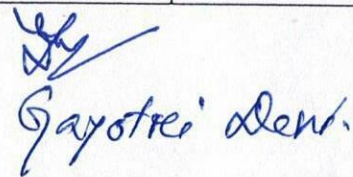 Gayotrei Deni.